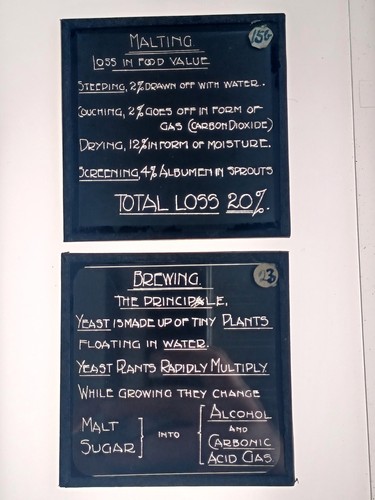 MALTING
156
LOSS IN FOOD VALUE
STEEPING, 2% DRAWN OFF WITH WATER.
COUCHING, 2% GOES OFF IN FORM OF
GAS (CARBON DIOXIDE)
DRYING, 12% IN FORM OF MOISTURE.
SCREENING, 4% ALBUMEN IN SPROUTS
TOTAL LOSS 20%.
BREWING.
23
THE PRINCIPALE,
YEAST IS MADE UP OF TINY PLANTS
FLOATING IN WATER.
YEAST PLANTS RAPIDLY MULTIPLY
WHILE GROWING THEY CHANGE
MALT
SUGAR
INTO
ALCOHOL
AND
CARBONIC
ACID GAS